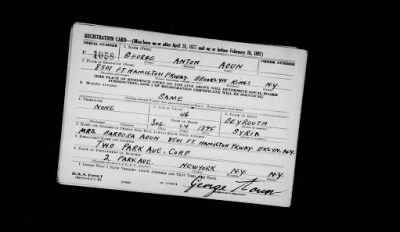 REGISTRATION CARD—(Men born on or after April 28, 1877 and on or before February 16, 1897)
SERIAL NUMBER 1. NAME (Print) ORDER NUMBER
U 1058 GEORGE ANTON AOUN
2. PLACE OF RESIDENCE (Print)
8501 FT HAMILTON PKWAY. BROOKLYN KINGS N.Y.
[THE PLACE OF RESIDENCE GIVEN ON THE LINE ABOVE WILL DETERMINE LOCAL BOARD
JURISDICTION; LINE 2 OF REGISTRATION CERTIFICATE WILL BE IDENTICAL]
3. MAILING ADDRESS
SAME
4. TELEPHONE
NONE 46 BEYROUTH
JUL 1895 SYRIA
7. NAME AND ADDRESS OF PERSON WHO WILL ALWAYS KNOW YOUR ADDRESS
MRS. AOUN 8501 FT HAMILTON PKWAY. BKLYN. N.Y.
8. EMPLOYER'S NAME AND ADDRESS
TWO PARK AVE. CORP
9. PLACE OF EMPLOYMENT OR BUSINESS
2 PARK AVE. NEW YORK N.Y. N.Y.
I AFFIRM THAT I HAVE VERIFIED ABOVE ANSWERS AND THAT THEY ARE TRUE.
D.S.S. Form 1
George Aoun